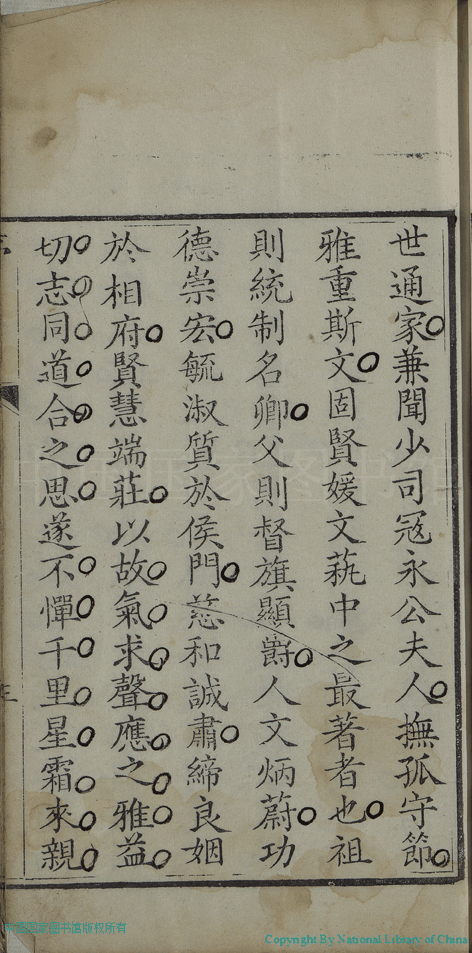 世通家兼聞少司冦永公夫人撫孤守節
雅重斯文固賢媛文蓺中之最著者也祖
則統制名卿父則督旗顯爵人文炳蔚功
德崇宏毓淑質於侯門慈和誠肅締良姻
於相府賢慧端莊以故氣求聲應之雅益
切志同道合之思遂不憚千里星霜來親
Copyright By National Library of China